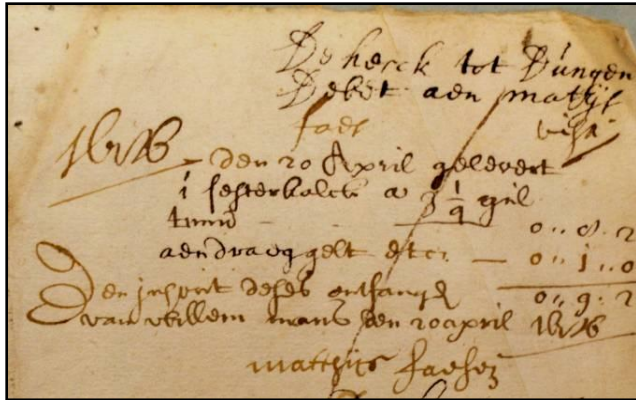 De kerck tot Dungen
Debet aen matijs
faes
16 - den 20 April gelevert
1 sester kalck a 3 1/4 gul
0 „ 8 „ 2
aendraag gelt etc: — 0 „ 1 „ 0
0 „ 9 „ 2
Den inhout deses ontfangen
van willem den 20 april
matthijs faesen